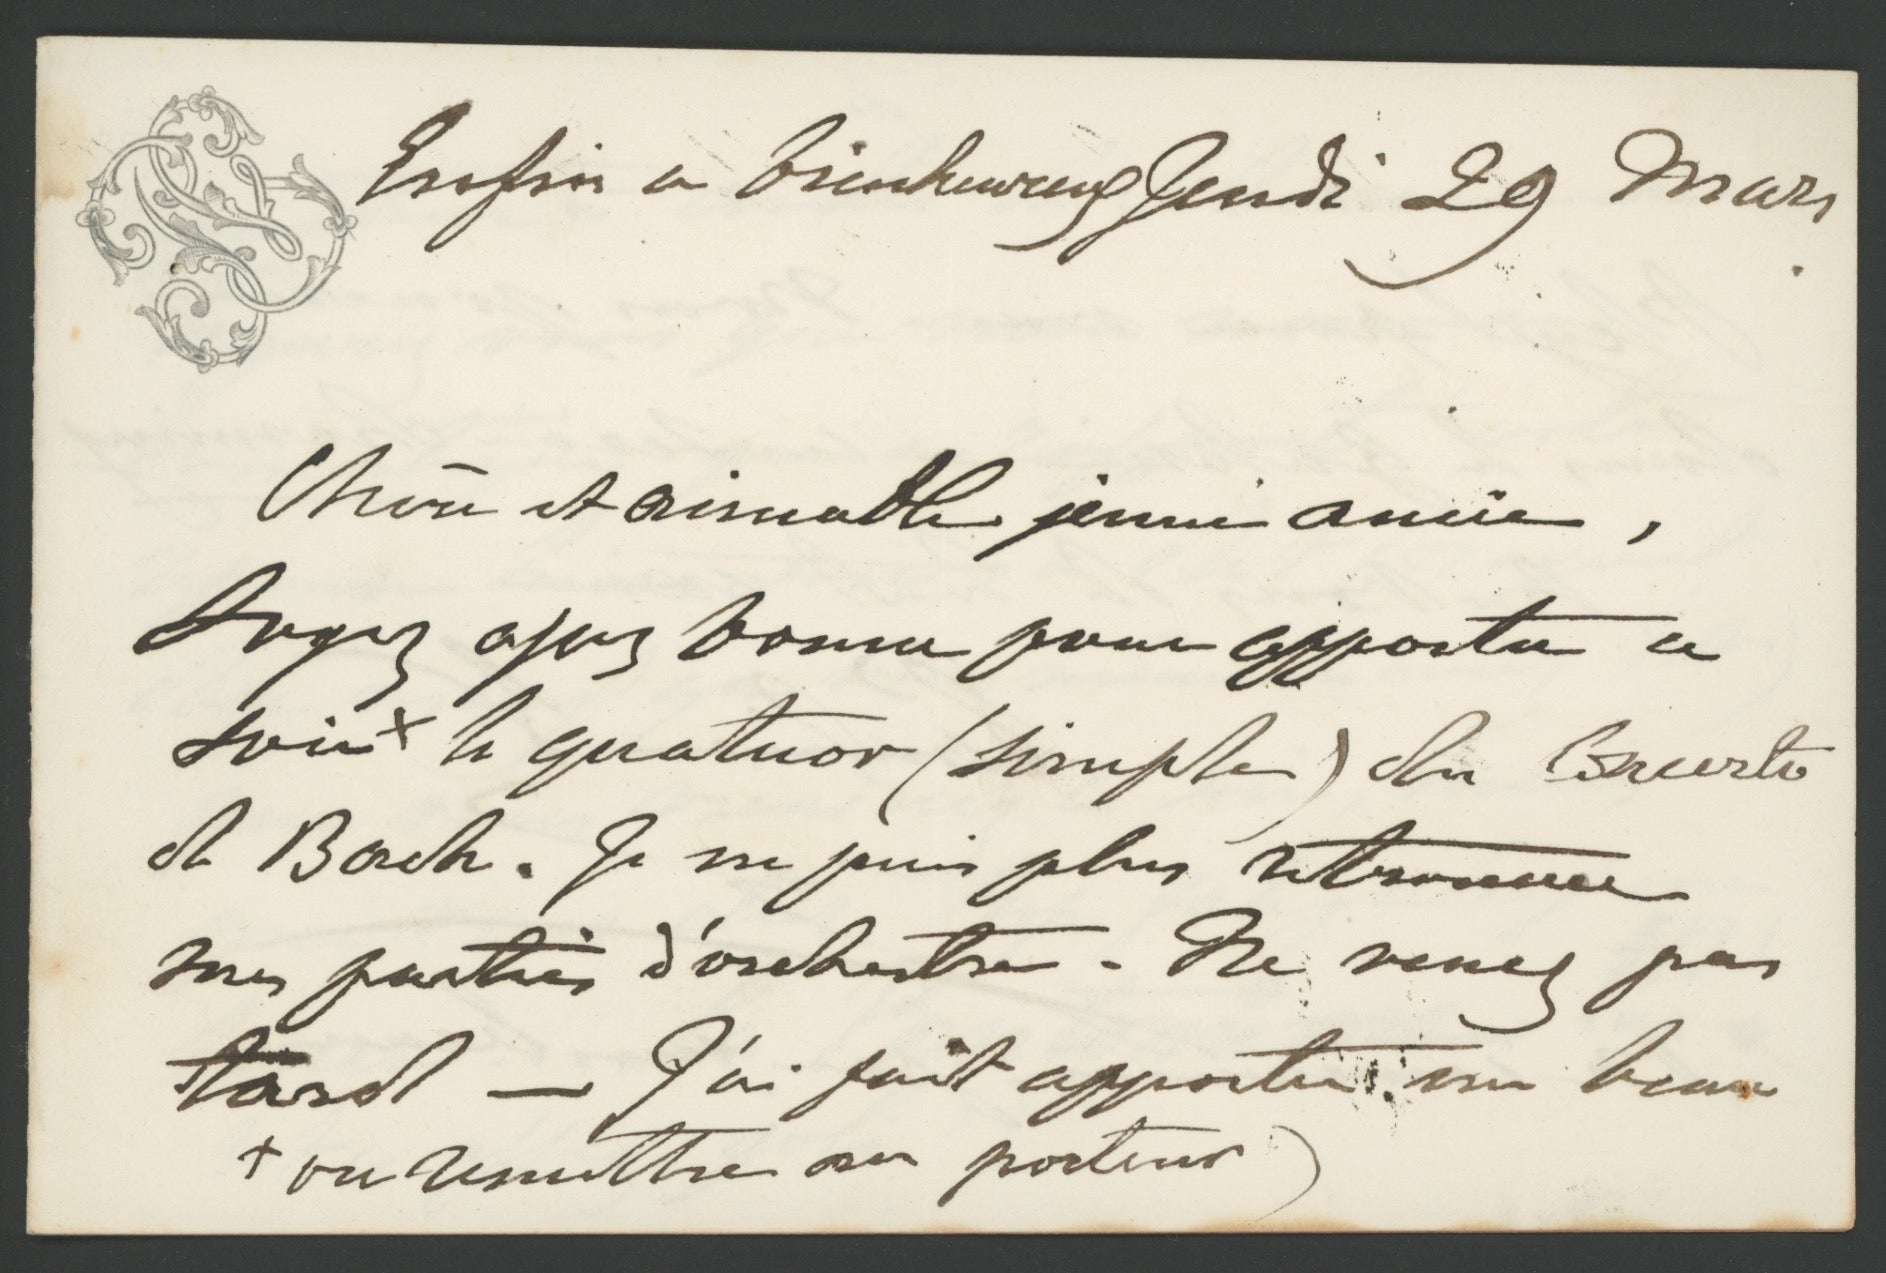 Enfin ce bienheureux Jeudi 29 Mars
Chère et aimable jeune amie,
Soyez assez bonne pour apporter ce
soir + le quatuor (simple) du Concerto
de Bach. Je ne puis plus retrouver
mes parties d'orchestre. Ne venez pas
tard — J'ai fait apporter un beau
+ ou remettre au porteur)